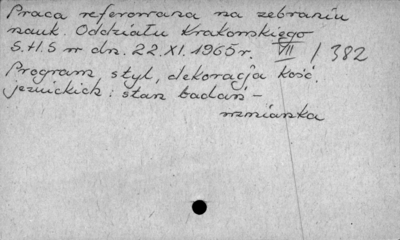 Praca referowana na zebraniu
nauk. Oddziału Krakowskiego
S.H.S w dn. 22.XI.1965r. VII / 382
Program, styl, dekoracja kość.
jezuickich: stan badań –
wzmianka